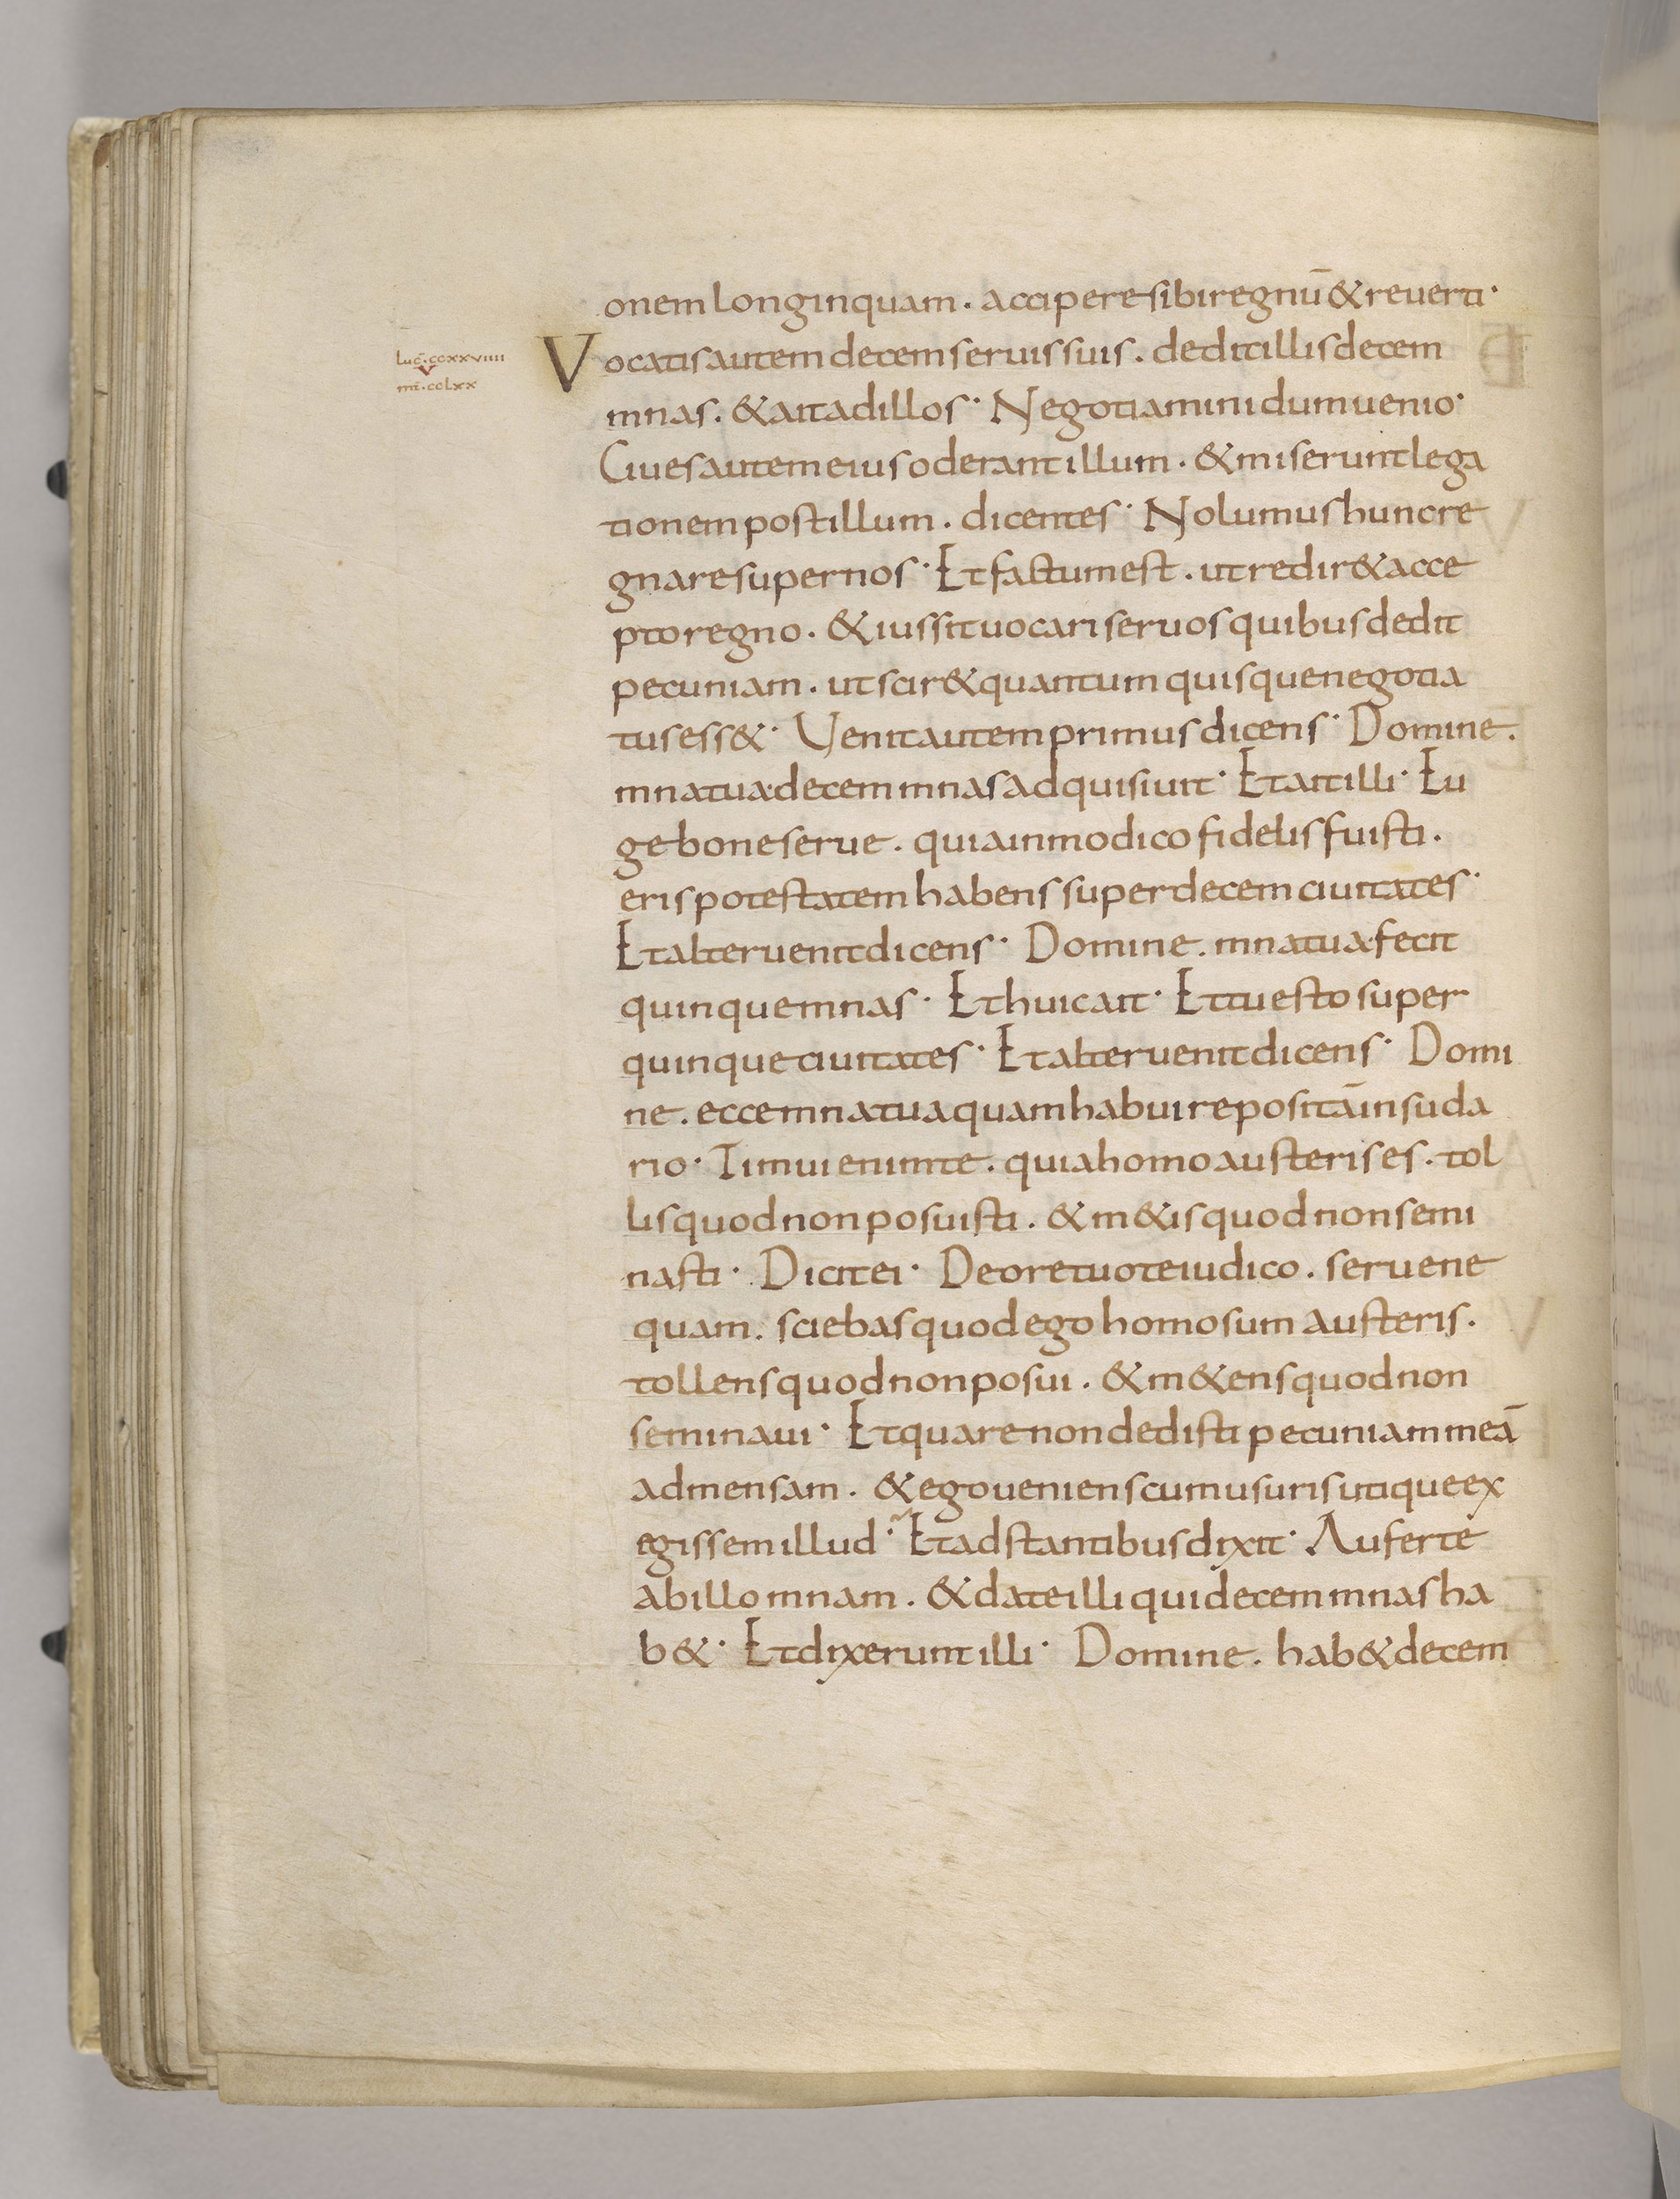 onem longinquam. accipere sibi regnū & reuerti·
luc̄. ccxxviiii
V
mt̄. cclxx
Vocatis autem decem seruis suis. dedit illis decem
mnas. & ait ad illos· Negotiamini dum uenio·
Ciues autem eius oderant illum. & miserunt lega
tionem post illum. dicentes· Nolumus hunc re
gnare super nos· Et factum est. ut redir& acce
pto regno. & iussit uocari seruos quibus dedit
pecuniam. ut scir& quantum quisque negotia
tus ess&· Uenit autem primus dicens· Domine.
mna tua decem mnas adquisiuit· Et ait illi· Eu
ge bone serue. quia in modico fidelis fuisti.
eris potestatem habens super decem ciuitates·
Et alter uenit dicens· Domine. mna tua fecit
quinque mnas· Et huic ait· Et tu esto super
quinque ciuitates· Et alter uenit dicens· Domi
ne. ecce mna tua quam habui repositā in suda
rio· Timui enim te. quia homo austeris es. tol
lis quod non posuisti. & m&is quod non semi
nasti· Dicit ei· De ore tuo te iudico. serue ne
quam. sciebas quod ego homo sum austeris.
tollens quod non posui. & m&ens quod non
seminaui· Et quare non dedisti pecuniam meā
ad mensam. & ego ueniens cum usuris utique ex
egissem illud· Et adstantibus dixit· Auferte
ab illo mnam. & date illi qui decem mnas ha
b&· Et dixerunt illi· Domine. hab& decem